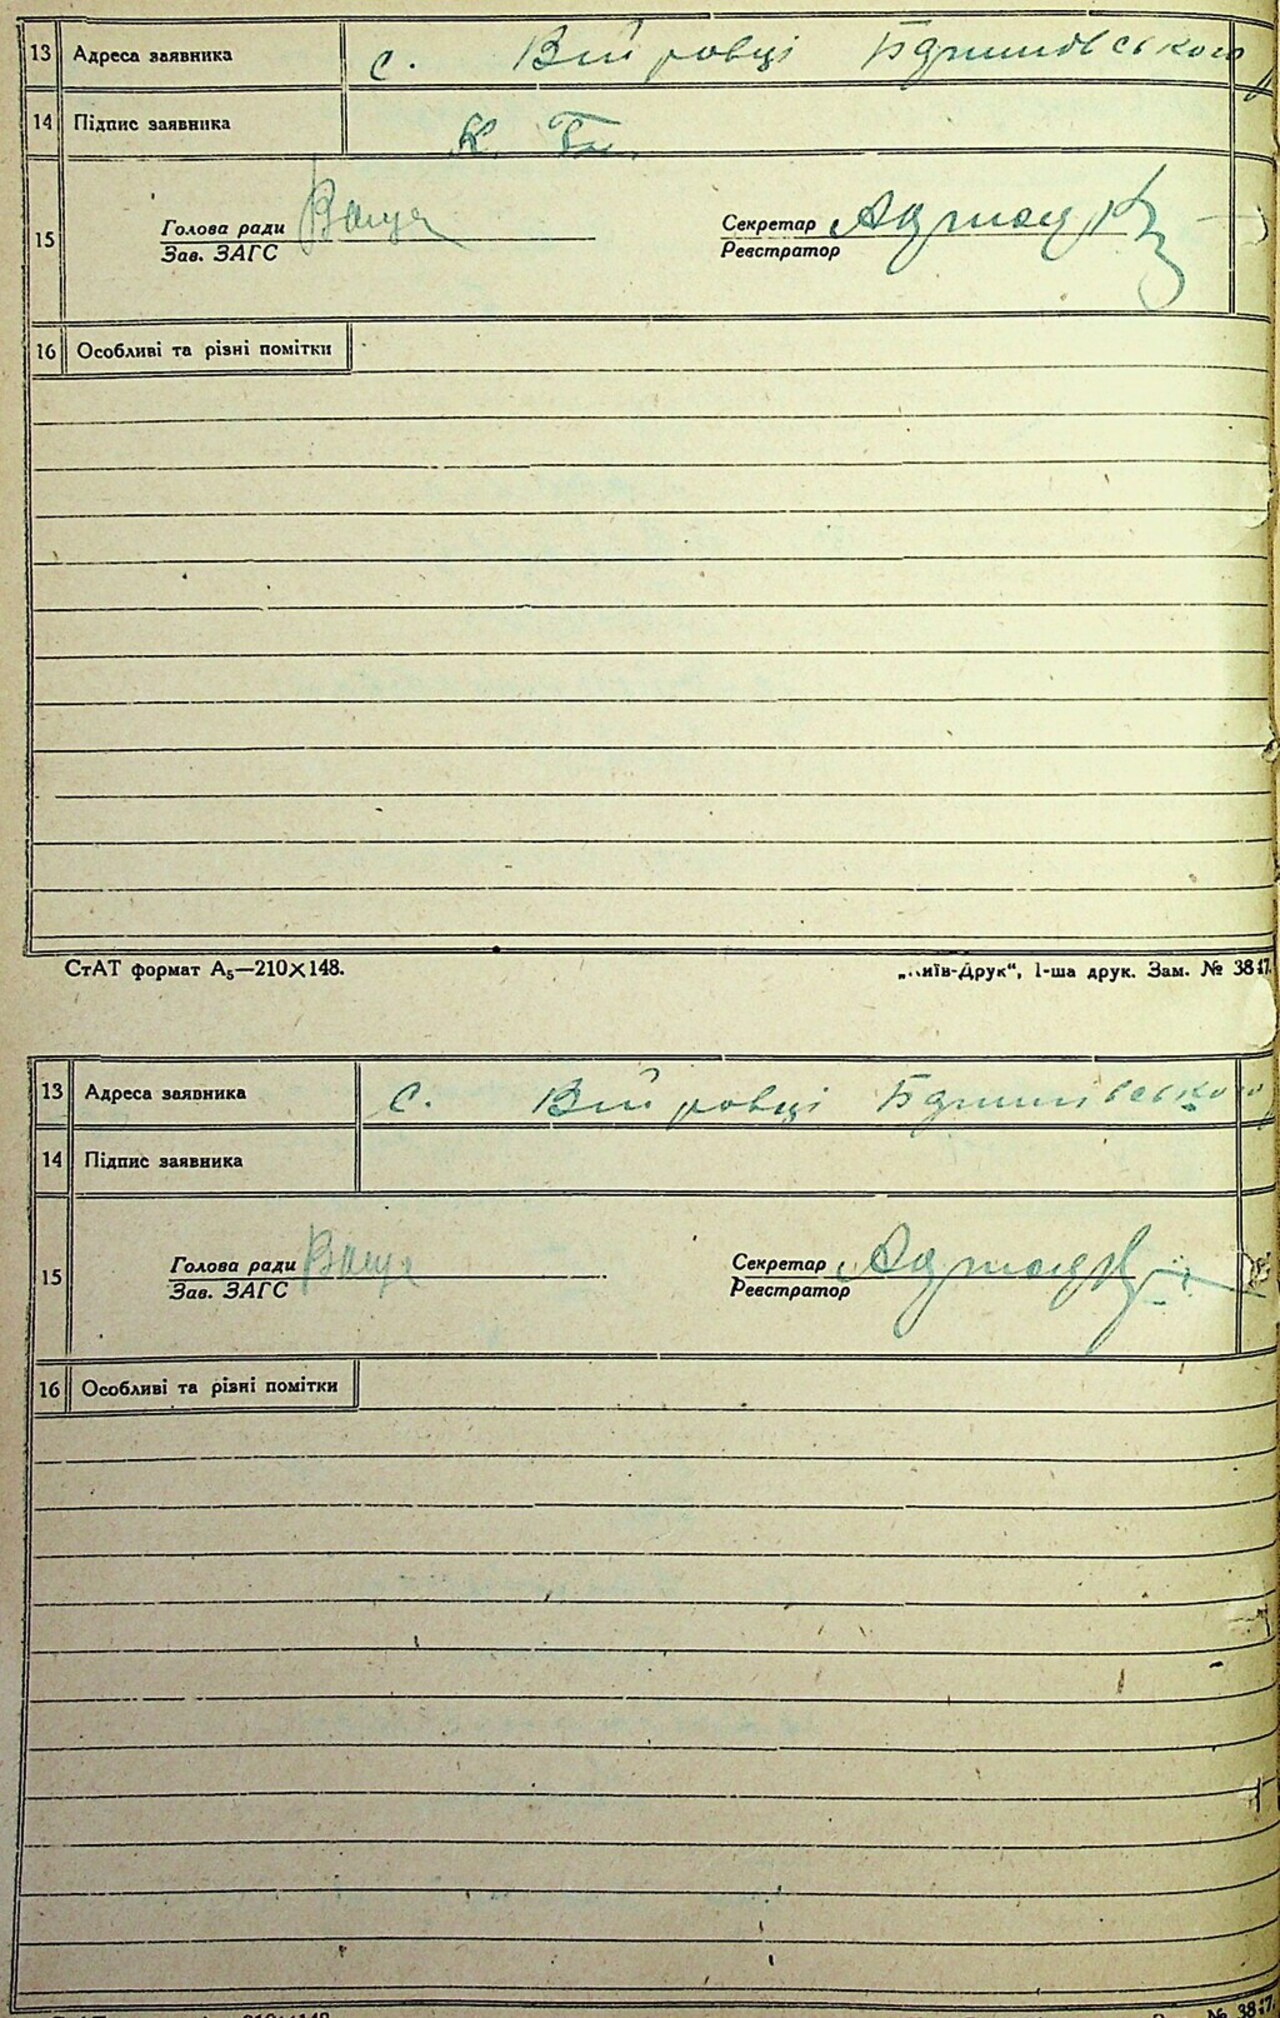 13 Адреса заявника с. Війровці
14 Підпис заявника К.
15 Голова ради Ваща Секретар
Зав. ЗАГС Реєстратор
16 Особливі та різні помітки
СтАТ формат А5—210×148. „Київ-Друк“, 1-ша друк. Зам. № 3817.
13 Адреса заявника с. Війровці
14 Підпис заявника
15 Голова ради Ваща Секретар
Зав. ЗАГС Реєстратор
16 Особливі та різні помітки
№ 3817.